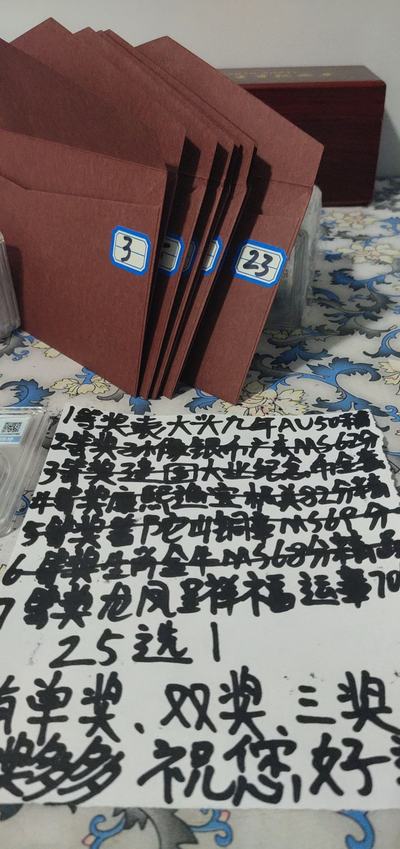 3
23
1等奖袁大头九年AU50
2等奖小像银币广东MS62分
3等奖建国大业纪念
4等奖康熙通宝极美82分精
5等奖普陀山铜章MS69分
6等奖生肖金牛MS68分精
7等奖龙凤呈祥福运章70
25选1
有单奖、双奖、三奖
奖多多 祝您好